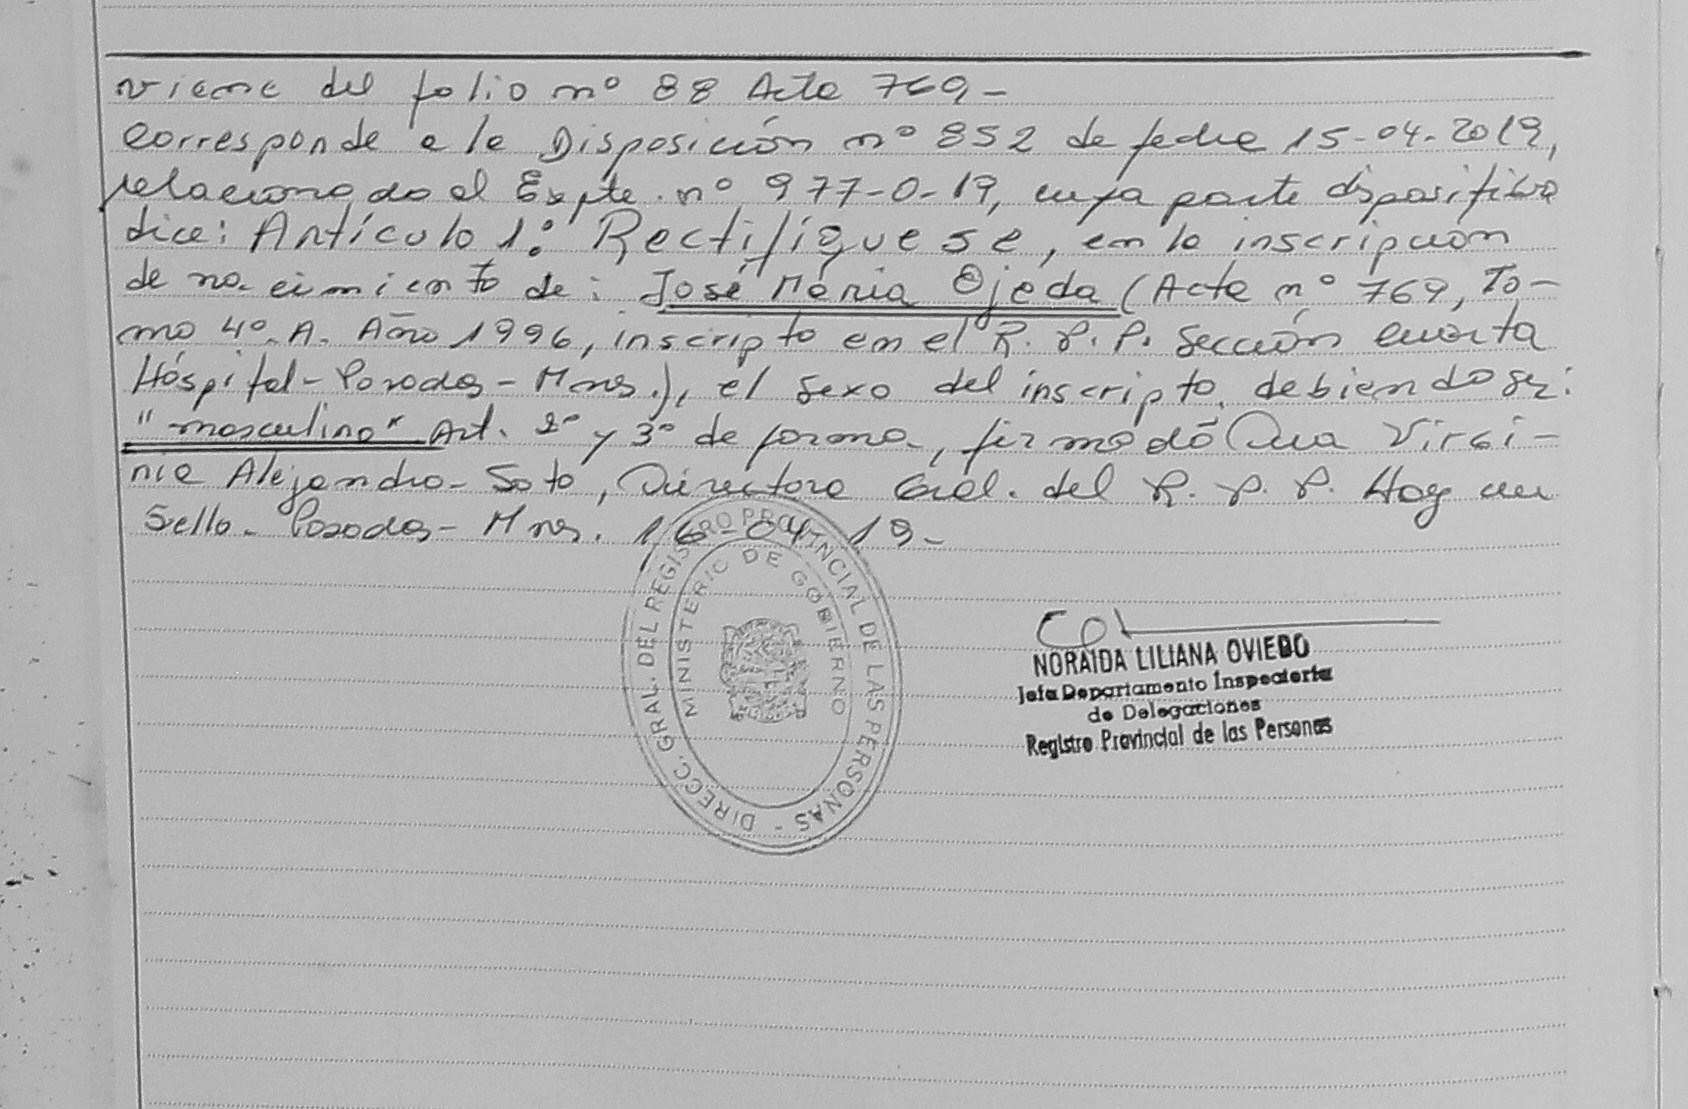 viene del folio nº 88 Acta 769-
Corresponde a la Disposición nº 852 de fecha 15-04-2019,
relacionado al Expte. nº 977-O-19, cuya parte dispositiva
dice: Artículo 1º: Rectifíquese, en la inscripción
de nacimiento de: José María Ojeda (Acta nº 769, To-
mo 4º. A. Año 1996, inscripto en el R. P. P. Sección cuarta
Hospital - Posadas - Mnes.), el sexo del inscripto, debiendo ser:
"masculino" Art. 2º y 3º de forma, firmado Ana Virgi-
nia Alejandra Soto, Directora Gral. del R. P. P. Hay un
Sello. Posadas - Mnes. 16-04-19-
DIRECC. GRAL. DEL REGISTRO PROVINCIAL DE LAS PERSONAS -
MINISTERIO DE GOBIERNO
NORAIDA LILIANA OVIEDO
Jefa Departamento Inspectoría
de Delegaciones
Registro Provincial de las Personas